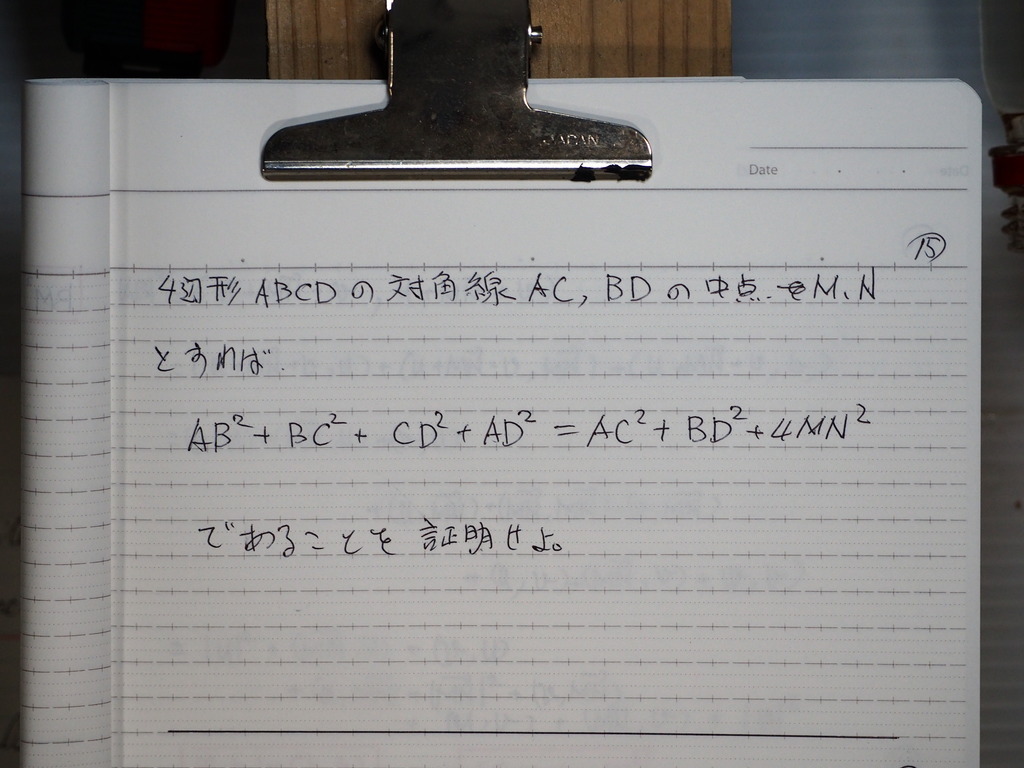 JAPAN
Date
⑮
4辺形ABCDの対角線AC, BDの中点をM、N
とすれば
AB²+ BC²+ CD²+AD² = AC²+ BD²+4MN²
であることを証明せよ。